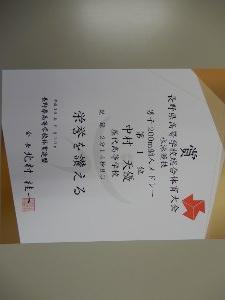 賞
長野県高等学校総合体育大会
水泳競技
男子200m個人メドレー
第1位
中村 天優
屋代高等学校
記録 2分14秒
栄誉を讃える
長野県高等学校体育連盟
会長 北村 桂一